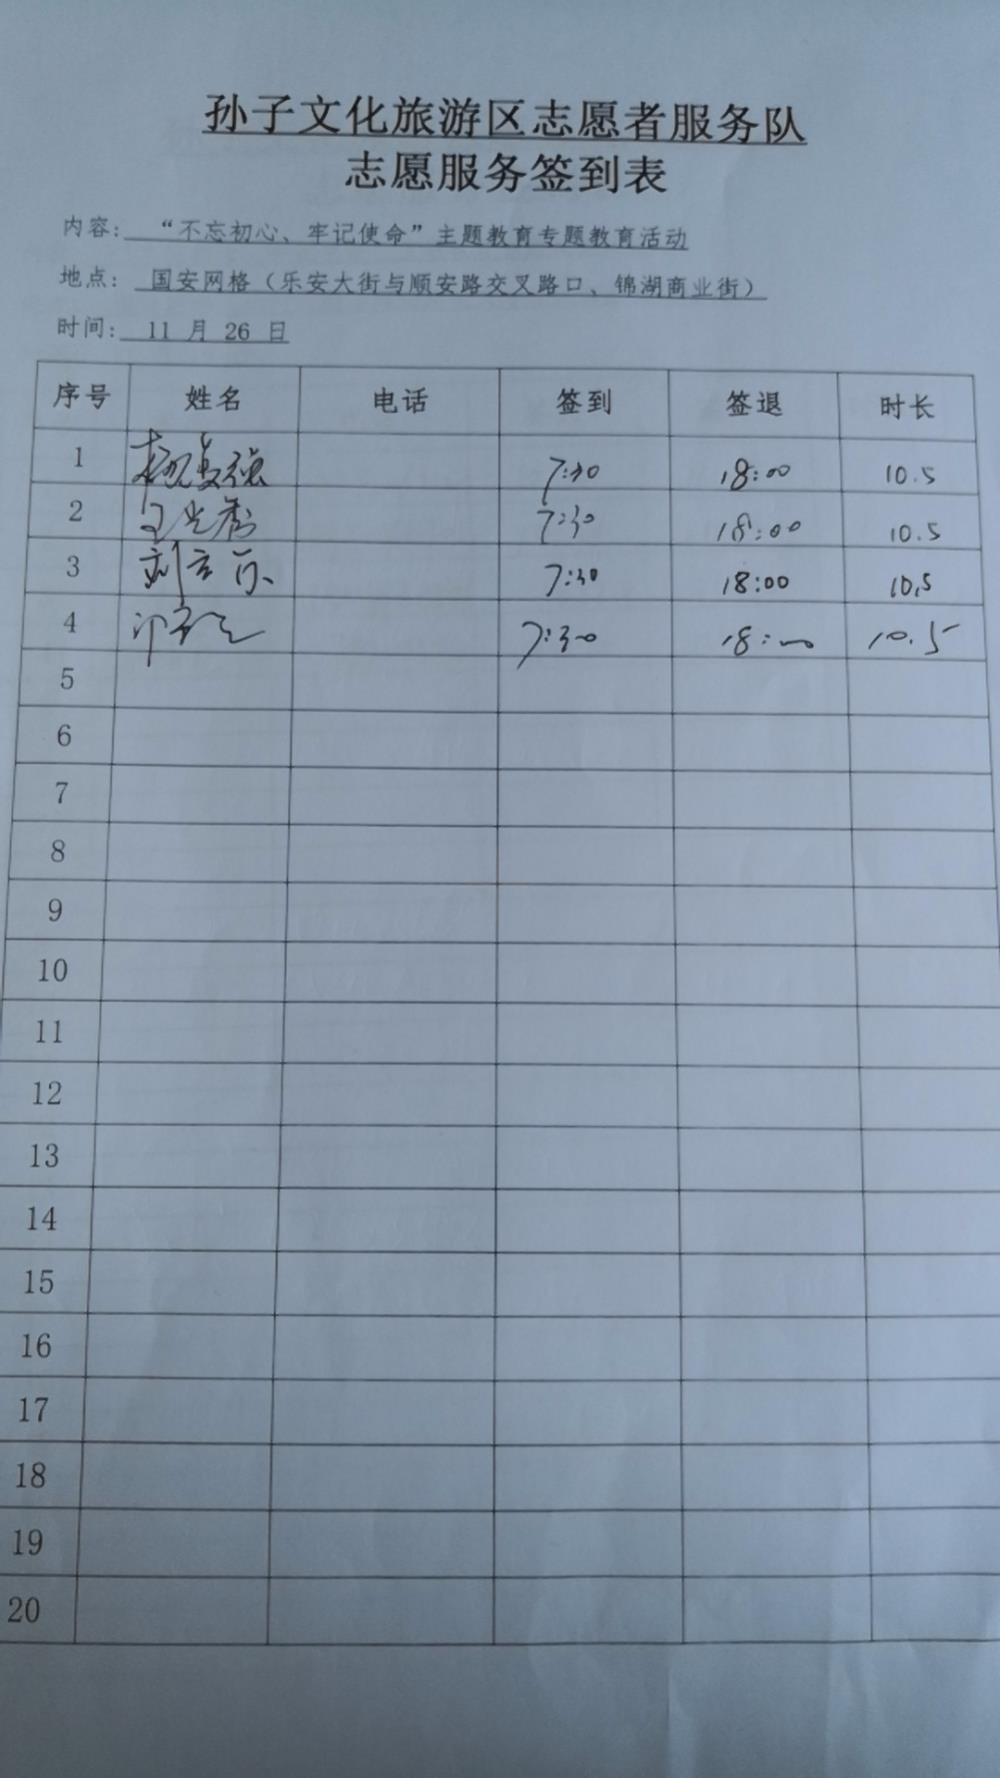 孙子文化旅游区志愿者服务队
志愿服务签到表
内容：“不忘初心、牢记使命”主题教育专题教育活动
地点：国安网格（乐安大街与顺安路交叉路口、锦湖商业街）
时间：11 月 26 日
序号 姓名 电话 签到 签退 时长
1 7:30 18:00 10.5
2 7:30 18:00 10.5
3 7:30 18:00 10.5
4 7:30 18:00 10.5
5
6
7
8
9
10
11
12
13
14
15
16
17
18
19
20